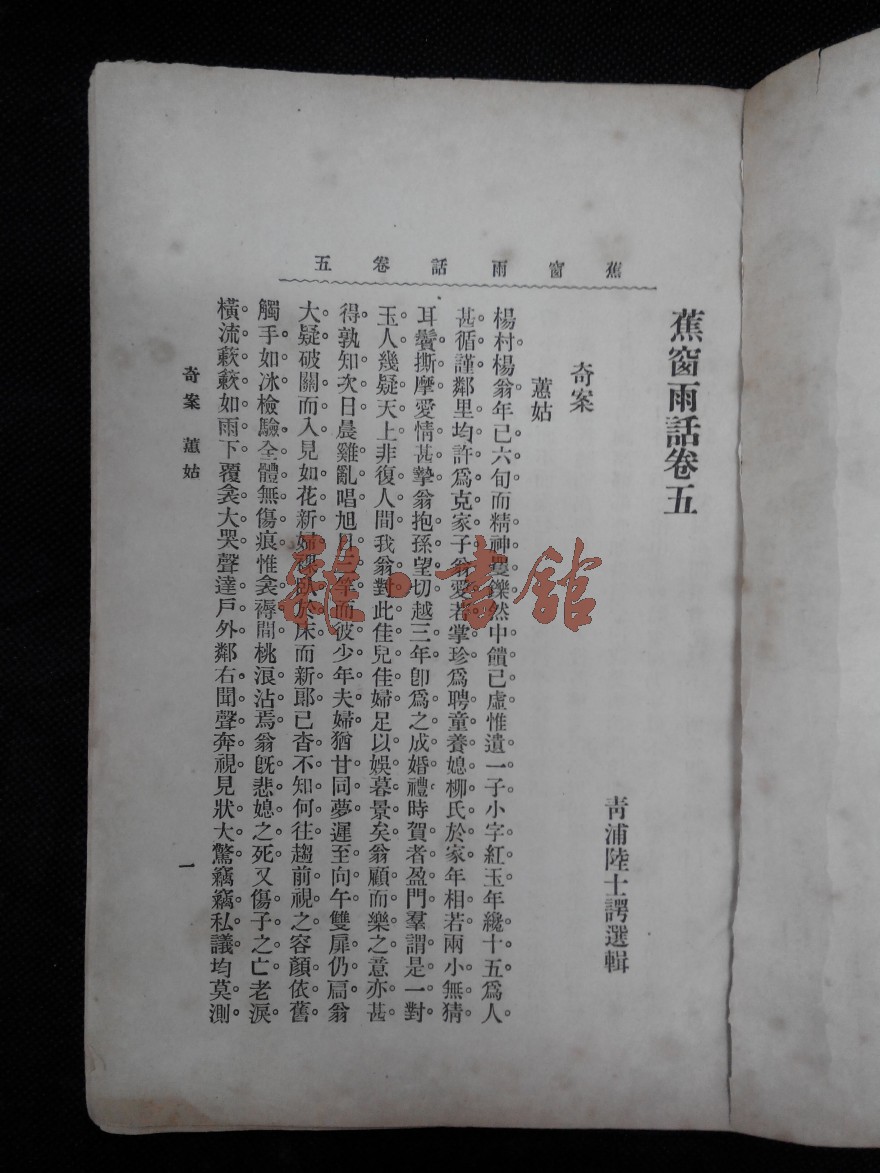 蕉窗雨話卷五
蕉窗雨話卷五
青浦陸士諤選輯
奇案
蕙姑
楊村楊翁年已六旬而精神矍鑠然中饋已虛惟遺一子小字紅玉年纔十五爲人
甚循謹鄰里均許爲克家子翁愛若掌珍爲聘童養媳柳氏於家年相若兩小無猜
耳鬢撕摩愛情甚摯翁抱孫望切越三年卽爲之成婚禮時賀者盈門羣謂是一對
玉人幾疑天上非復人間我翁對此佳兒佳婦足以娛暮景矣翁顧而樂之意亦甚
得孰知次日晨雞亂唱旭日而彼少年夫婦猶甘同夢遲至向午雙扉仍扃翁
大疑破關而入見如花新婦臥於床而新郞已杳不知何往趨前視之容顏依舊
觸手如冰檢驗全體無傷痕惟衾褥間桃浪沾焉翁旣悲媳之死又傷子之亡老淚
橫流簌簌如雨下覆衾大哭聲達戶外鄰右聞聲奔視見狀大驚竊竊私議均莫測
奇案 蕙姑
一
雜·書館